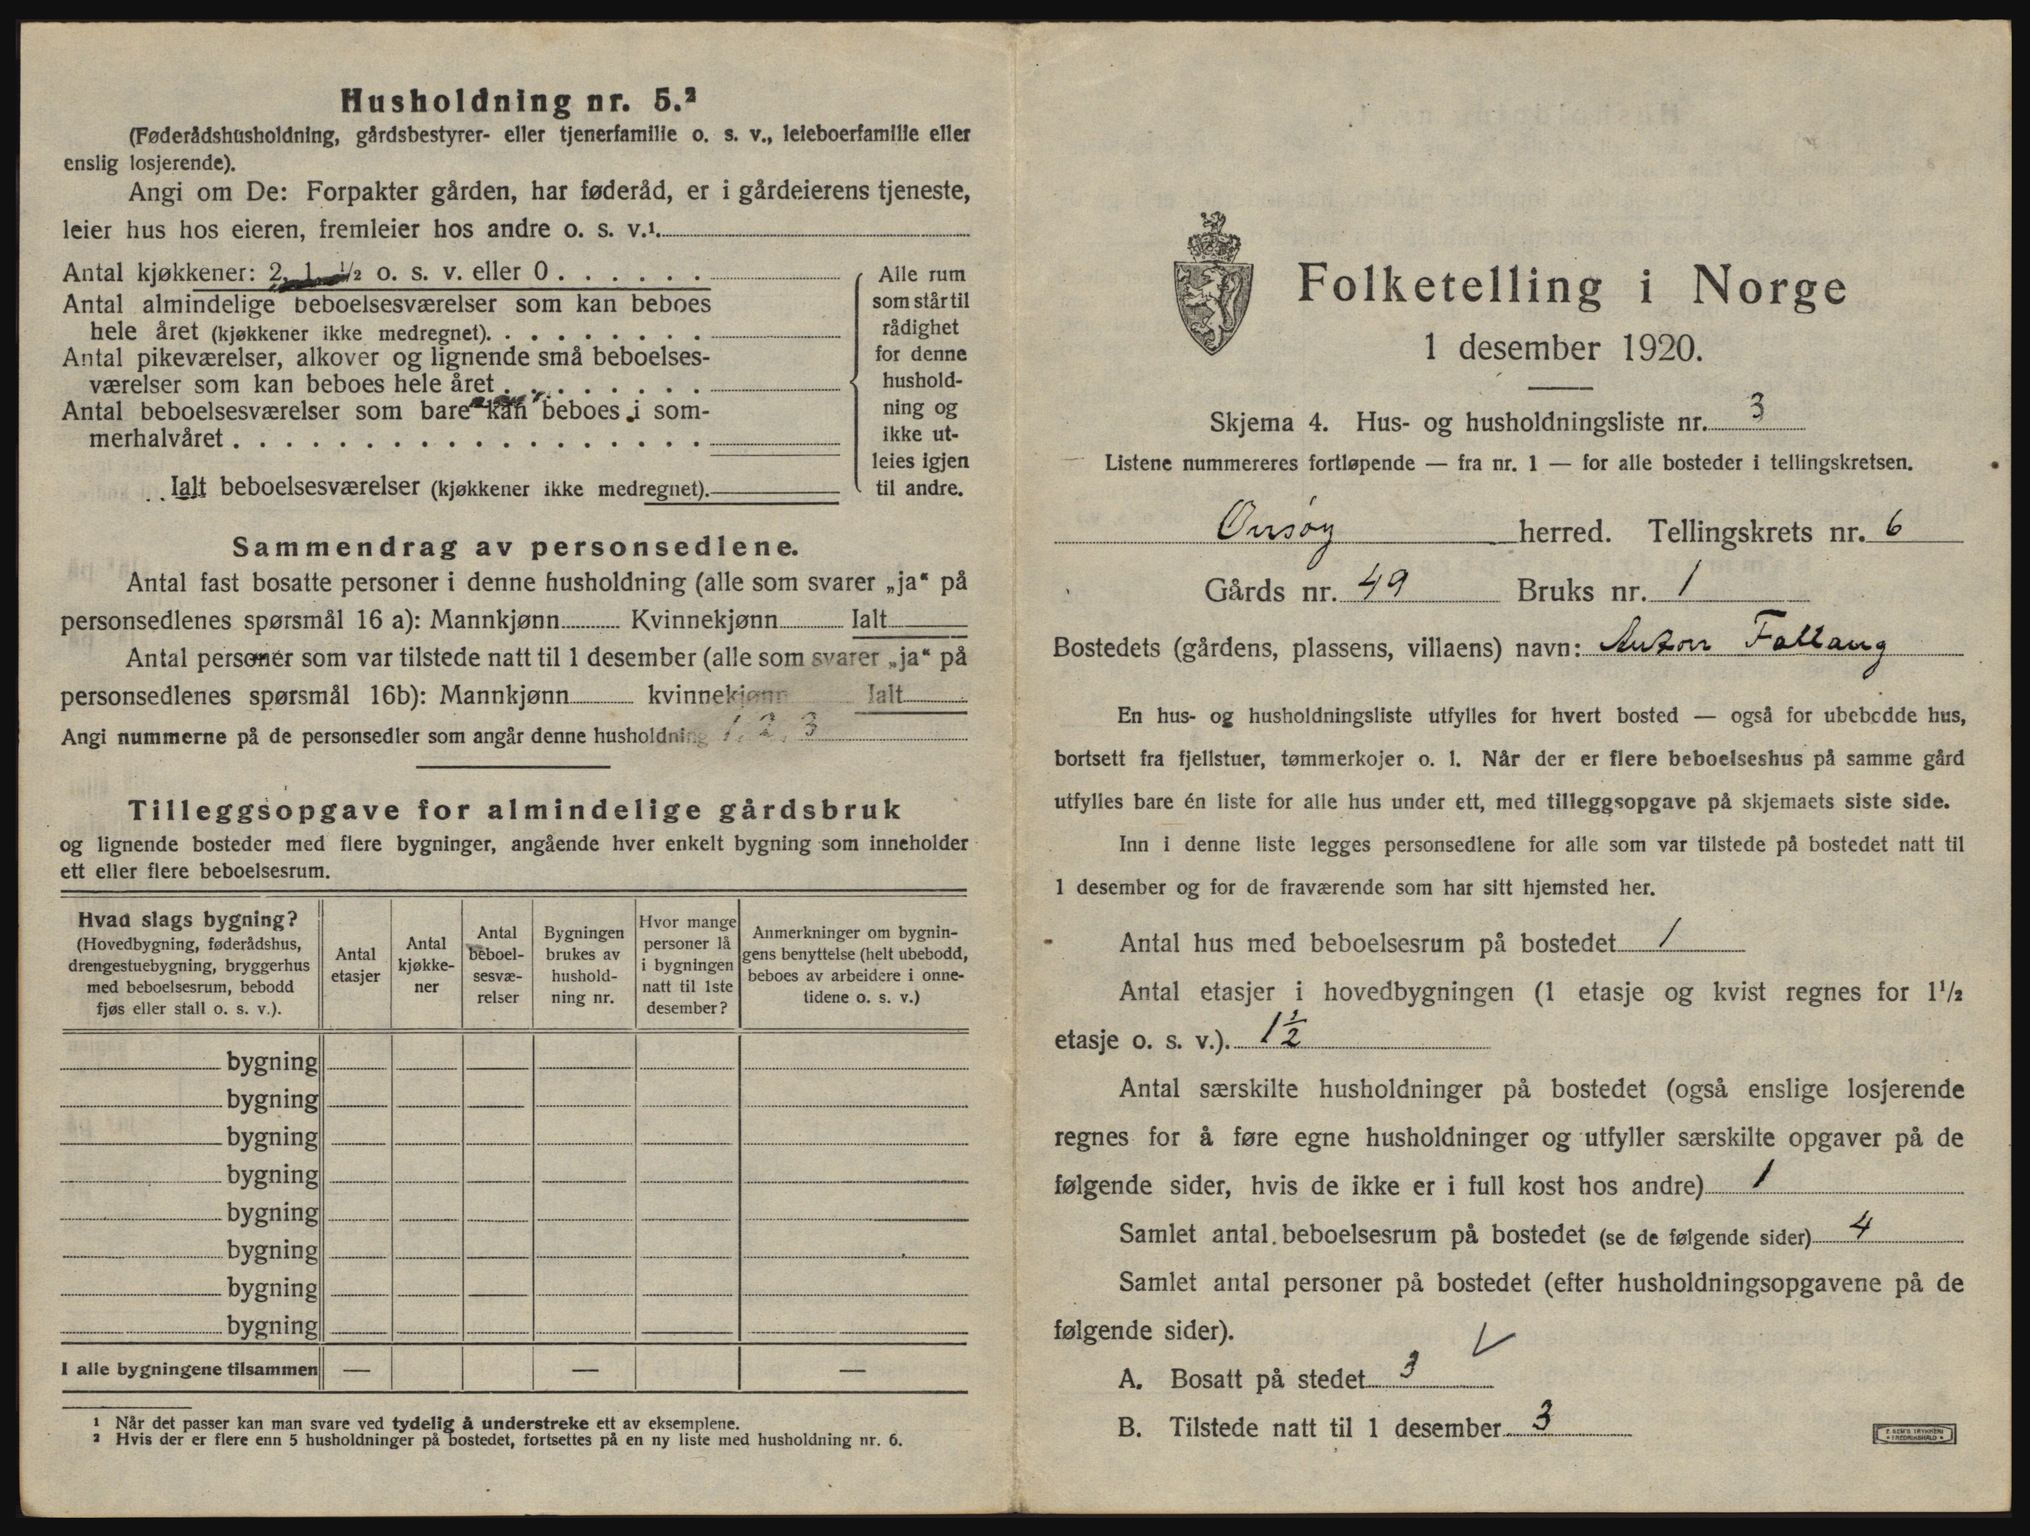 Husholdning nr. 5.²
(Føderådshusholdning, gårdsbestyrer- eller tjenerfamilie o. s. v., leieboerfamilie eller
enslig losjerende).
Angi om De: Forpakter gården, har føderåd, er i gårdeierens tjeneste,
leier hus hos eieren, fremleier hos andre o. s. v.¹
Antal kjøkkener: 2, 1, ½ o. s. v. eller 0
Antal almindelige beboelsesværelser som kan beboes
hele året (kjøkkener ikke medregnet)
Antal pikeværelser, alkover og lignende små beboelses-
værelser som kan beboes hele året
Antal beboelsesværelser som bare kan beboes i som-
merhalvåret
Ialt beboelsesværelser (kjøkkener ikke medregnet)
Alle rum
som står til
rådighet
for denne
hushold-
ning og
ikke ut-
leies igjen
til andre.
Sammendrag av personsedlene.
Antal fast bosatte personer i denne husholdning (alle som svarer „ja“ på
personsedlenes spørsmål 16 a): Mannkjønn Kvinnekjønn Ialt
Antal personer som var tilstede natt til 1 desember (alle som svarer „ja“ på
personsedlenes spørsmål 16b): Mannkjønn kvinnekjønn Ialt
Angi nummerne på de personsedler som angår denne husholdning 1, 2, 3
Tilleggsopgave for almindelige gårdsbruk
og lignende bosteder med flere bygninger, angående hver enkelt bygning som inneholder
ett eller flere beboelsesrum.
Hvad slags bygning?
(Hovedbygning, føderådshus,
drengestuebygning, bryggerhus
med beboelsesrum, bebodd
fjøs eller stall o. s. v.).
Antal
etasjer
Antal
kjøkke-
ner
Antal
beboel-
sesvæ-
relser
Bygningen
brukes av
hushold-
ning nr.
Hvor mange
personer lå
i bygningen
natt til 1ste
desember?
Anmerkninger om bygnin-
gens benyttelse (helt ubebodd,
beboes av arbeidere i onne-
tidene o. s. v.)
bygning
bygning
bygning
bygning
bygning
bygning
bygning
bygning
I alle bygningene tilsammen — — —
¹ Når det passer kan man svare ved tydelig å understreke ett av eksemplene.
² Hvis der er flere enn 5 husholdninger på bostedet, fortsettes på en ny liste med husholdning nr. 6.
Folketelling i Norge
1 desember 1920.
Skjema 4. Hus- og husholdningsliste nr. 3
Listene nummereres fortløpende — fra nr. 1 — for alle bosteder i tellingskretsen.
Onsøy herred. Tellingskrets nr. 6
Gårds nr. 49 Bruks nr. 1
Bostedets (gårdens, plassens, villaens) navn: Anton Fallang
En hus- og husholdningsliste utfylles for hvert bosted — også for ubebodde hus,
bortsett fra fjellstuer, tømmerkojer o. l. Når der er flere beboelseshus på samme gård
utfylles bare én liste for alle hus under ett, med tilleggsopgave på skjemaets siste side.
Inn i denne liste legges personsedlene for alle som var tilstede på bostedet natt til
1 desember og for de fraværende som har sitt hjemsted her.
Antal hus med beboelsesrum på bostedet 1
Antal etasjer i hovedbygningen (1 etasje og kvist regnes for 1½
etasje o. s. v.). 1½
Antal særskilte husholdninger på bostedet (også enslige losjerende
regnes for å føre egne husholdninger og utfyller særskilte opgaver på de
følgende sider, hvis de ikke er i full kost hos andre) 1
Samlet antal beboelsesrum på bostedet (se de følgende sider) 4
Samlet antal personer på bostedet (efter husholdningsopgavene på de
følgende sider).
A. Bosatt på stedet 3
B. Tilstede natt til 1 desember 3
E. SEM'S TRYKKERI
FREDRIKSHALD